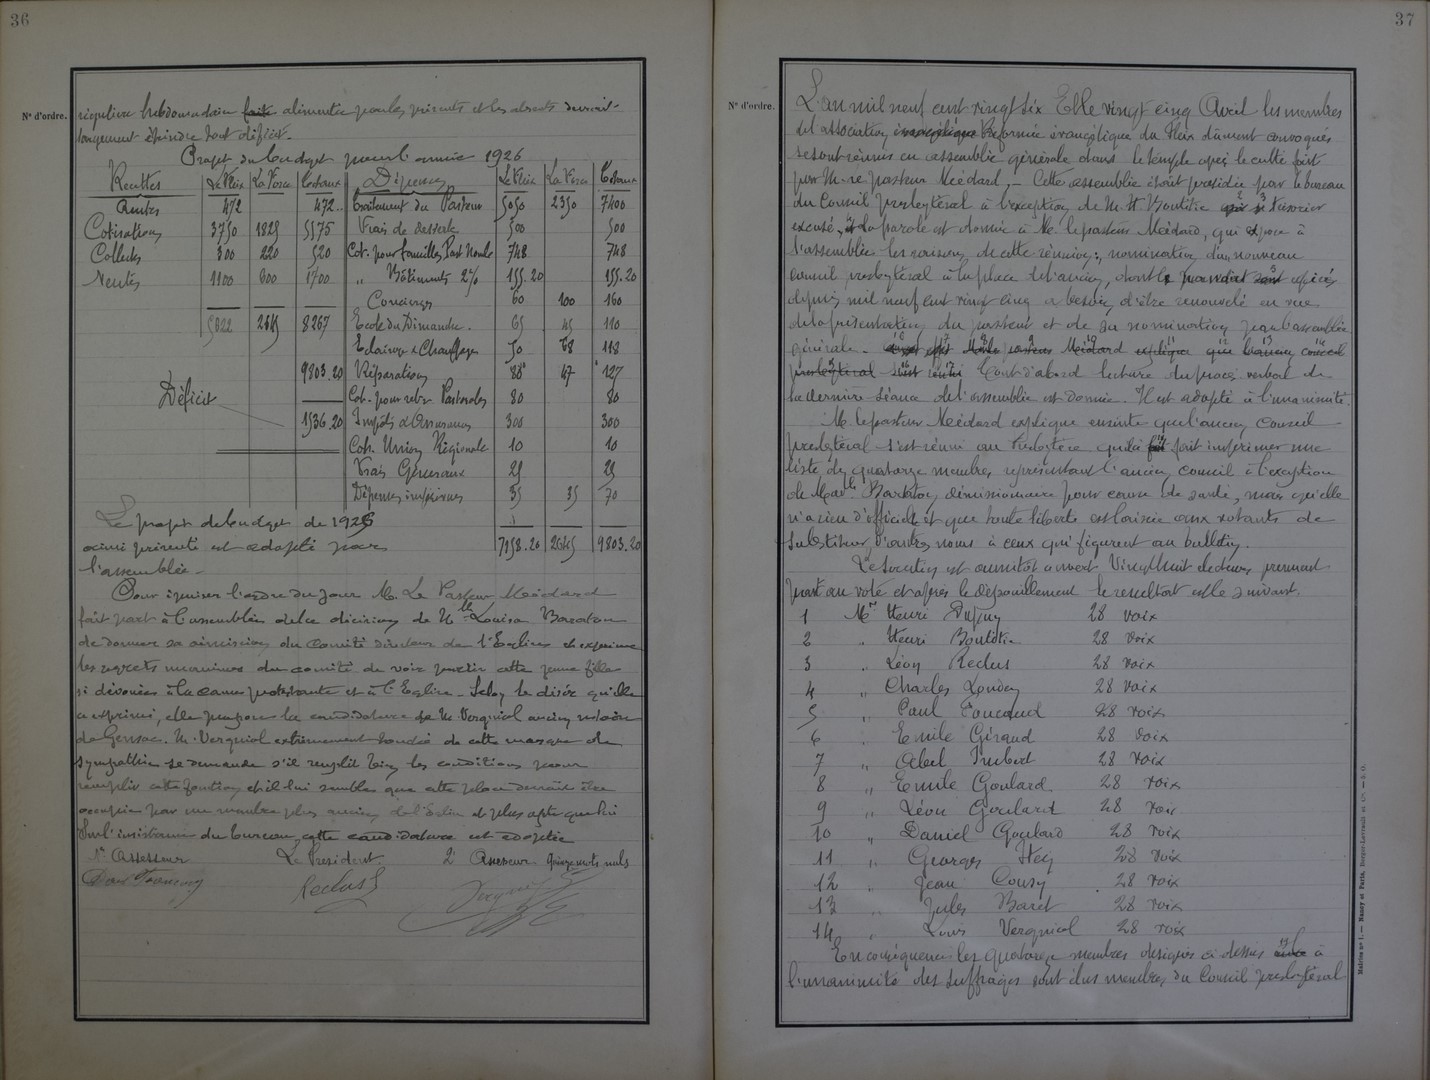 36
N° d'ordre.
régulière hebdomadaire faite alimentée par les présents et les absents devrait
largement éteindre tout déficit.
Projet du budget pour l'année 1926
Recettes Le Fleix La Force Totaux Dépenses Le Fleix La Force Totaux
Autres 472 472 Traitement du Pasteur 5050 2350 7400
Cotisations 3750 1825 5575 Frais de desserte 500 500
Collectes 300 220 520 Cot. pour familles Past. Nombr. 748 748
Ventes 1100 600 1700 " Bâtiments 2% 155.20 155.20
Concierge 60 100 160
5622 2645 8267 Ecole du Dimanche. 65 45 110
Eclairage & Chauffage 50 68 118
9803.20 Réparations 80 47 127
Déficit Cot. pour retr. Pastorales 80 80
1536.20 Impôts & Assurances 300 300
Cot. Union Régionale 10 10
Frais Généraux 25 25
Dépenses imprévues 35 35 70
Le projet de budget de 1926
ainsi présenté est adopté par 7158.20 2645 9803.20
l'assemblée.
Pour épuiser l'ordre du jour M. Le Pasteur Médard
fait part à l'assemblée de la décision de Mlle Louisa Baraton
de donner sa démission du Comité directeur de l'Eglise et exprime
les regrets unanimes du comité de voir partir cette jeune fille
si dévouée à la cause protestante et à l'Eglise. Selon le désir qu'elle
a exprimé, elle propose la candidature de M. Vergniol ancien notaire
de Gensac. M. Vergniol extrêmement touché de cette marque de
sympathie se demande s'il remplit bien les conditions pour
remplir cette fonction et il lui semble que cette place devrait être
occupée par un membre plus ancien de l'Eglise et plus apte que lui
Sur l'insistance du bureau, cette candidature est adoptée
1er Assesseur Le Président 2e Assesseur quinze mots nuls
Reclus
37
N° d'ordre.
L'an mil neuf cent vingt six Et le vingt cinq Avril les membres
de l'association évangélique Réformée évangélique du Fleix dûment convoqués
se sont réunis en assemblée générale dans le temple après le culte fait
par M. le pasteur Médard. Cette assemblée était présidée par le bureau
du Conseil presbytéral à l'exception de M. H. Boutitie trésorier
excusé, la parole est donnée à M. le pasteur Médard, qui expose à
l'assemblée les raisons de cette réunion: nomination d'un nouveau
conseil presbytéral à la place de l'ancien, dont le mandat expiré
depuis mil neuf cent vingt cinq a besoin d'être renouvelé en vue
de la présentation du pasteur et de sa nomination par l'assemblée
générale. Médard explique que l'ancien conseil
presbytéral s'est réuni Tout d'abord lecture du procès verbal de
la dernière séance de l'assemblée est donnée. Il est adopté à l'unanimité.
M. le pasteur Médard explique ensuite que l'ancien Conseil
presbytéral s'est réuni au Presbytère qu'il a fait fait imprimer une
liste de quatorze membres représentant l'ancien conseil à l'exception
de Mad.lle Baraton, démissionnaire pour cause de santé, mais qu'elle
n'a rien d'officiel et que toute liberté est laissée aux votants de
substituer d'autres noms à ceux qui figurent au bulletin.
Le scrutin est aussitôt ouvert. Vingt huit électeurs prennent
part au vote et après le dépouillement le résultat est le suivant.
1 Mr Henri Dupuy 28 voix
2 " Henri Boutitie 28 voix
3 " Léon Reclus 28 voix
4 " Charles Londey 28 voix
5 " Paul Foucaud 28 voix
6 " Emile Géraud 28 voix
7 " Abel Imbert 28 voix
8 " Emile Goulard 28 voix
9 " Léon Goulard 28 voix
10 " Daniel Goulard 28 voix
11 " Georges Itey 28 voix
12 " Jean Cousy 28 voix
13 " Jules Baret 28 voix
14 " Louis Vergniol 28 voix
En conséquence les quatorze membres désignés ci dessus à
l'unanimité des suffrages sont élus membres du Conseil presbytéral
Modèle n° 1. — Nancy et Paris, Berger-Levrault et Cie